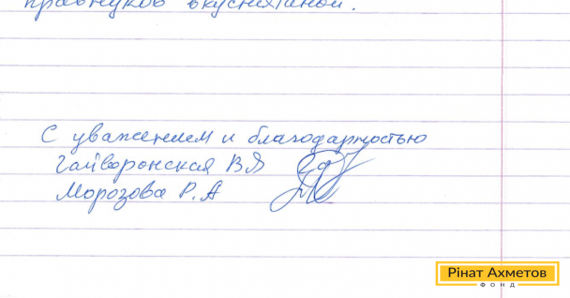 правнуков вкуснятиной.
С уважением и благодарностью
Гайворонская В Я
Морозова Р. А
Рінат Ахметов
ФОНД